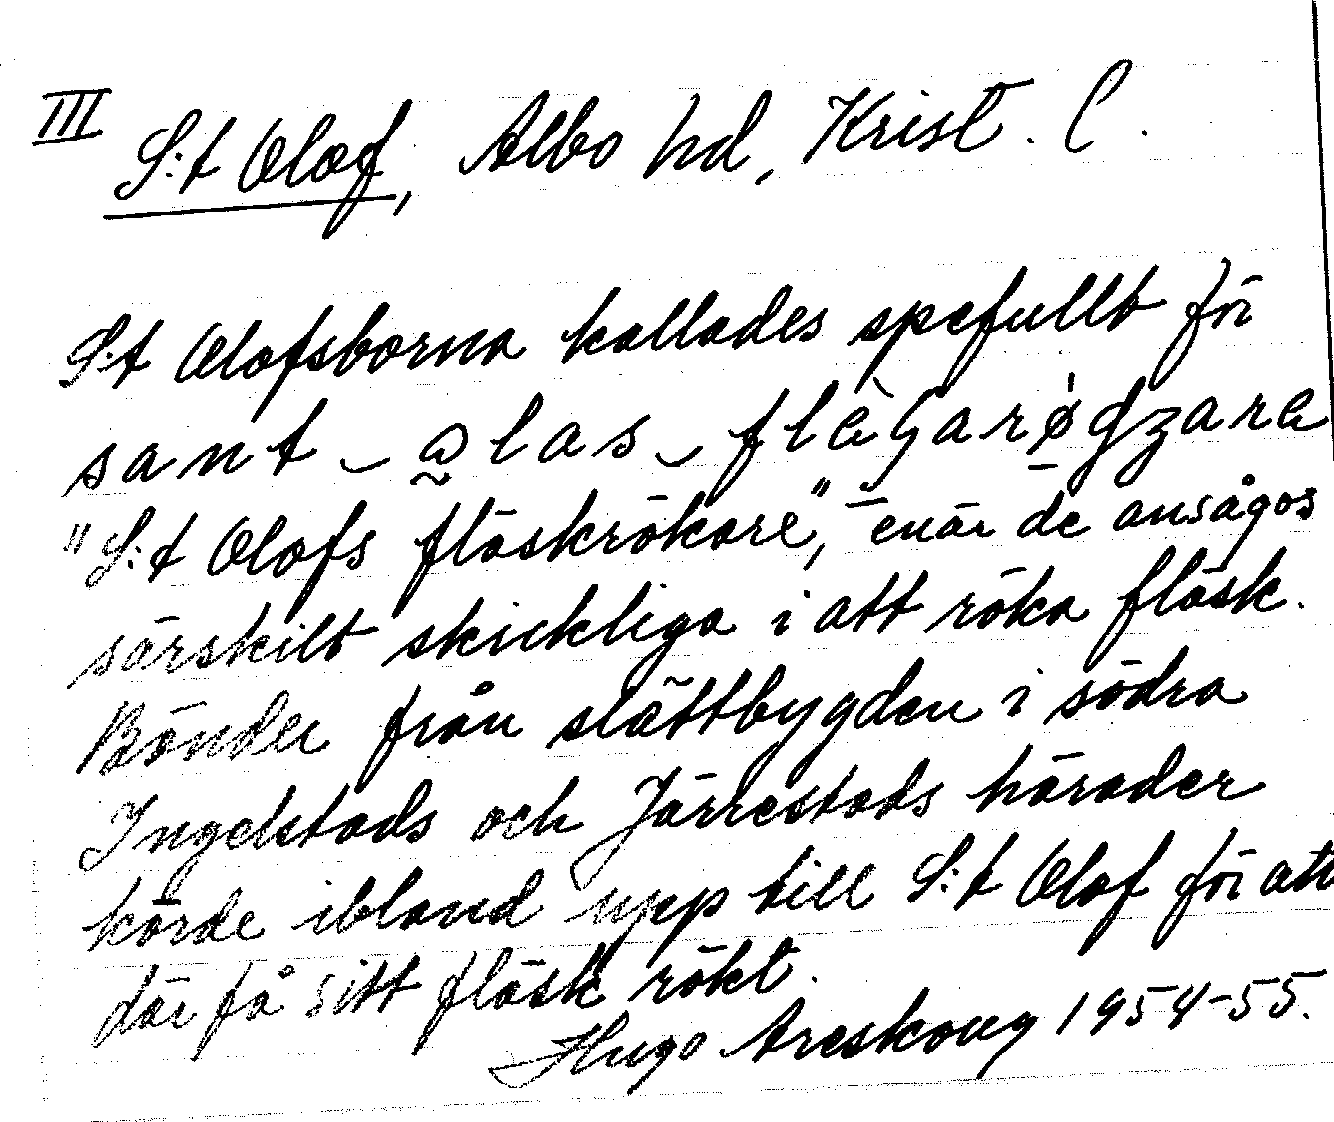 III
S:t Olof, Albo hd, Krist. C.
S:t Olofsborna kallades spefullt för
sant ‿ a̰las ‿
"S:t Olofs fläskrökare", enär de ansågos
särskilt skickliga i att röka fläsk.
Bönder från slättbygden i södra
Ingelstads och Järrestads härader
körde ibland upp till S:t Olof för att
där få sitt fläsk rökt.
Hugo Areskoug 1954-55.